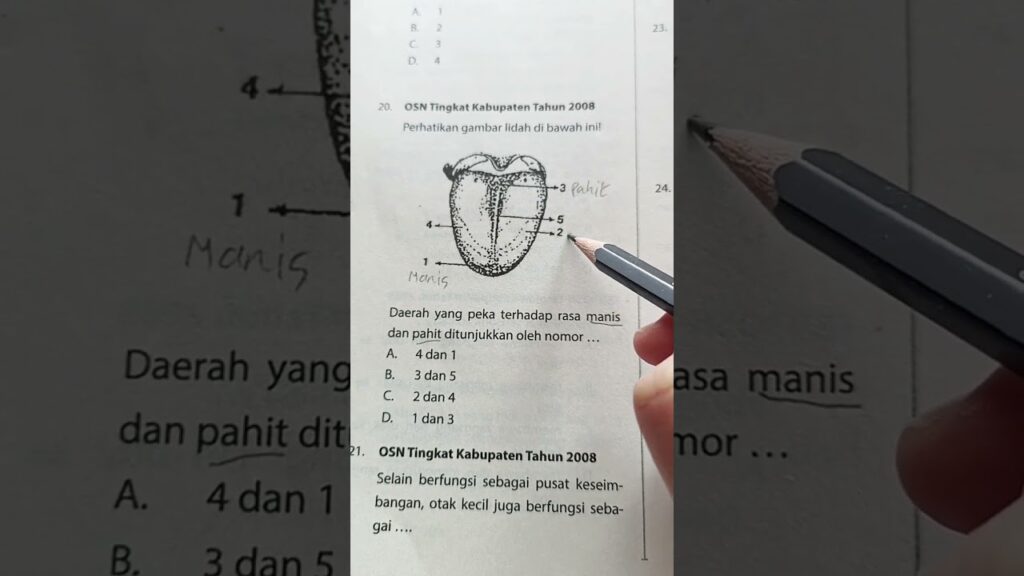 A. 1
B. 2
C. 3
D. 4
23.
20. OSN Tingkat Kabupaten Tahun 2008
Perhatikan gambar lidah di bawah ini!
3 Pahit
24.
4
5
2
1
Manis
Daerah yang peka terhadap rasa manis
dan pahit ditunjukkan oleh nomor ...
A. 4 dan 1
B. 3 dan 5
C. 2 dan 4
D. 1 dan 3
21. OSN Tingkat Kabupaten Tahun 2008
Selain berfungsi sebagai pusat keseim-
bangan, otak kecil juga berfungsi seba-
gai ....
4
1
Manis
Daerah yang
dan pahit dit
A. 4 dan 1
B. 3 dan 5
asa manis
mor ...